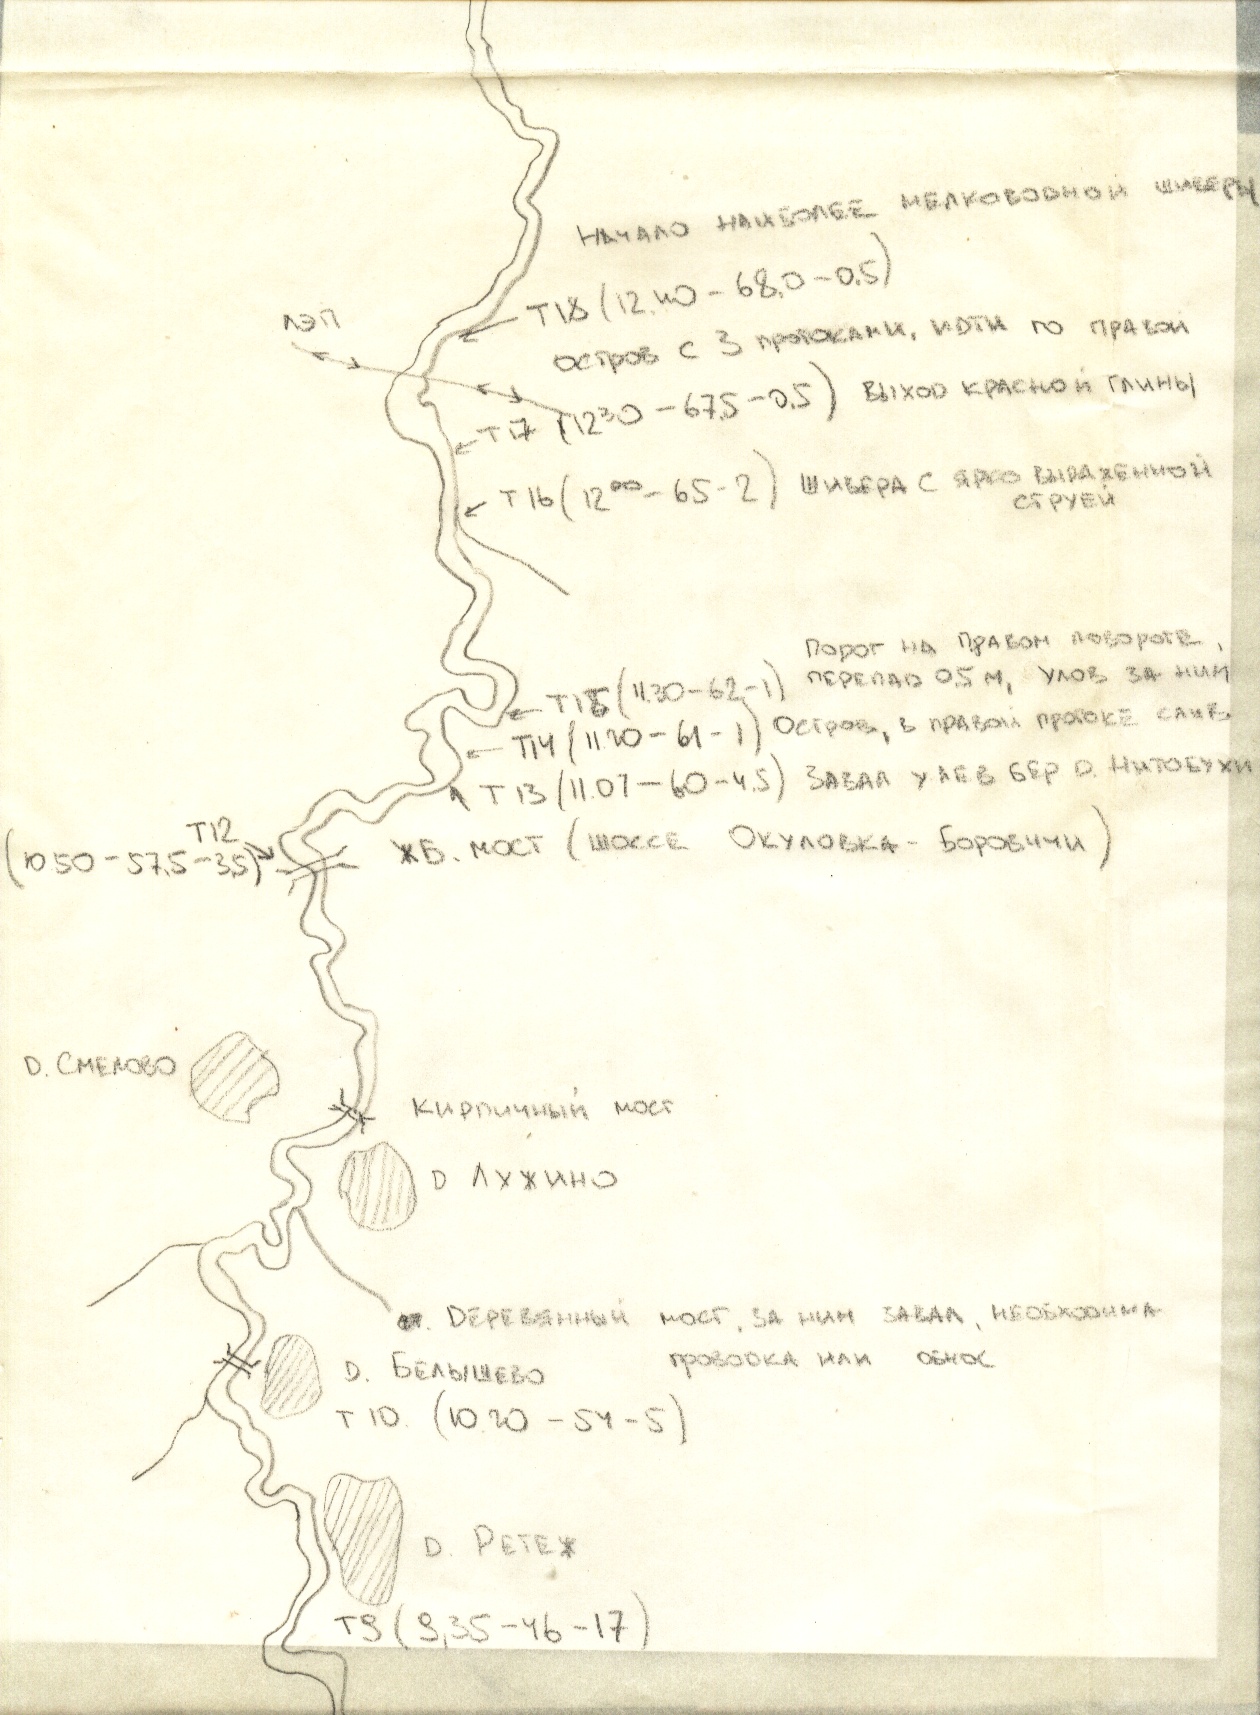 Начало наиболее мелководной шиверы
Т18 (12.40 - 68,0 - 0.5)
ЛЭП
остров с 3 протоками, идти по правой
Т17 (12³⁰ - 67,5 - 0,5) выход красной глины
Т16 (12⁰⁰ - 65 - 2) шивера с ярко выраженной
струей
Порог на правом повороте,
Т15 (11.30 - 62 - 1) перепад 0,5 м, улов за ним
Т14 (11.20 - 61 - 1) Остров, в правой протоке слив
Т13 (11.07 - 60 - 4.5) завал у лев бер д. Нитобухи
Т12
(10.50 - 57,5 - 3,5) ЖБ. мост (шоссе Окуловка - Боровичи)
д. Смелово
кирпичный мост
д Лужино
Деревянный мост, за ним завал, необходима
проводка или обнос
д. Белышево
Т10. (10.20 - 54 - 5)
д. Ретеж
Т9 (9,35 - 46 - 17)